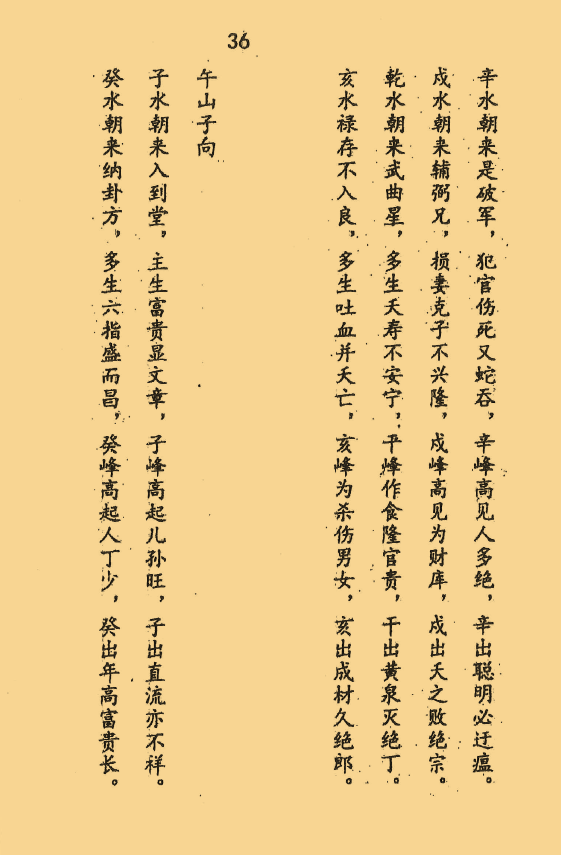 36
辛水朝来是破军，犯官伤死又蛇吞，辛峰高见人多绝，辛出聪明必迂瘟。
戍水朝来辅弼兄，损妻克子不兴隆，戍峰高见为财库，戍出夭之败绝宗。
乾水朝来武曲星，多生夭寿不安宁，平峰作食隆官贵，干出黄泉灭绝丁。
亥水禄存不入良，多生吐血并夭亡，亥峰为杀伤男女，亥出成材久绝郎。
午山子向
子水朝来入到堂，主生富贵显文章，子峰高起儿孙旺，子出直流亦不祥。
癸水朝来纳卦方，多生六指盛而昌，癸峰高起人丁少，癸出年高富贵长。